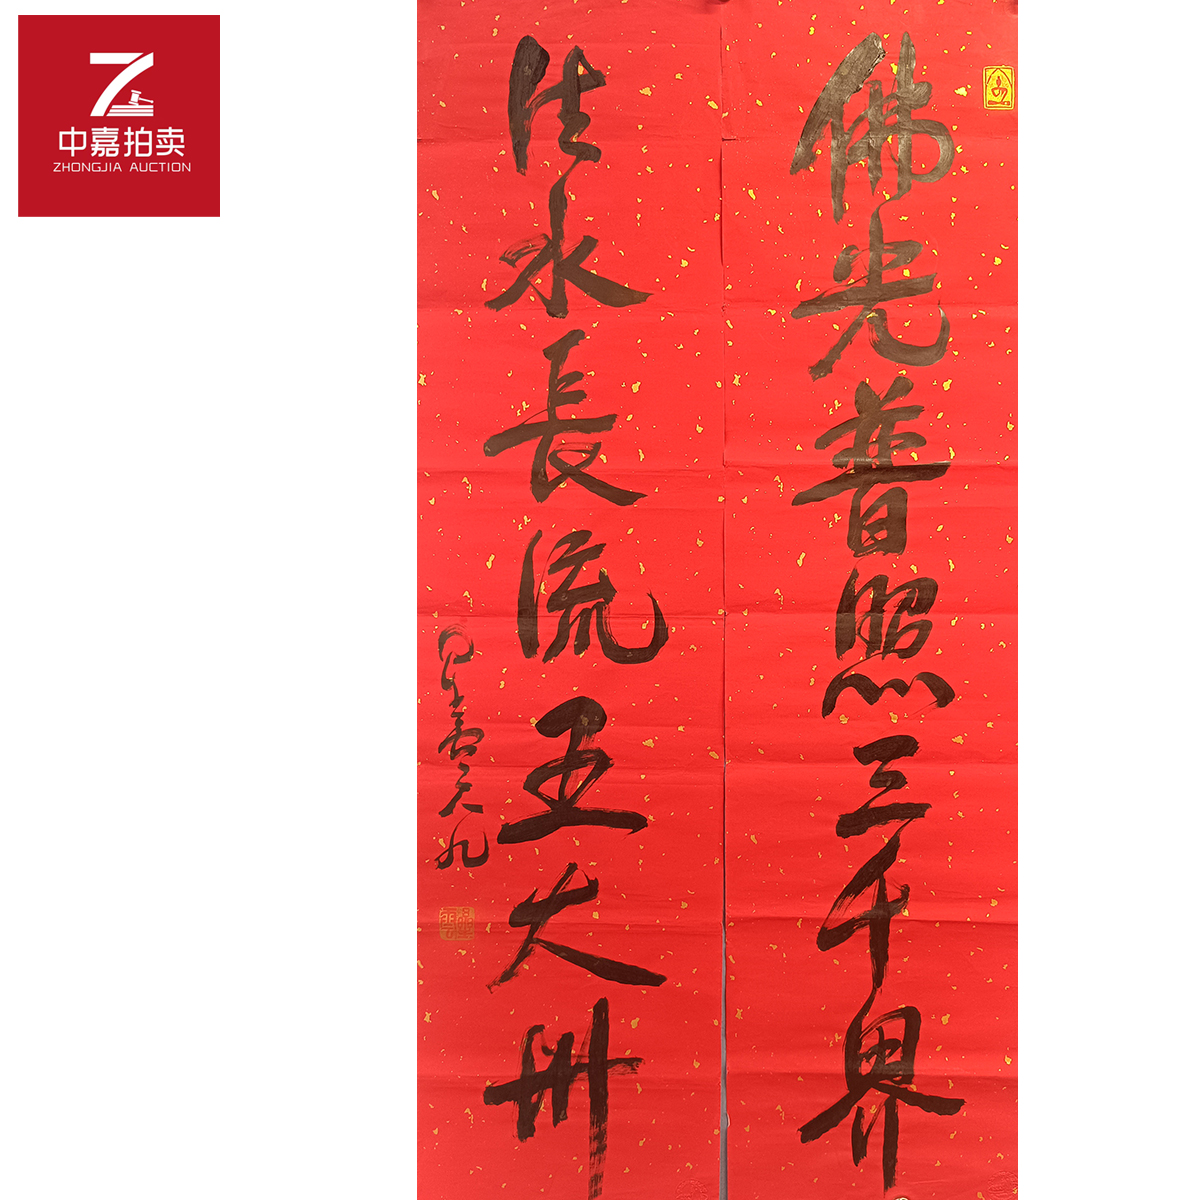 中嘉拍卖
ZHONGJIA AUCTION
佛光普照三千界
法水長流五大州